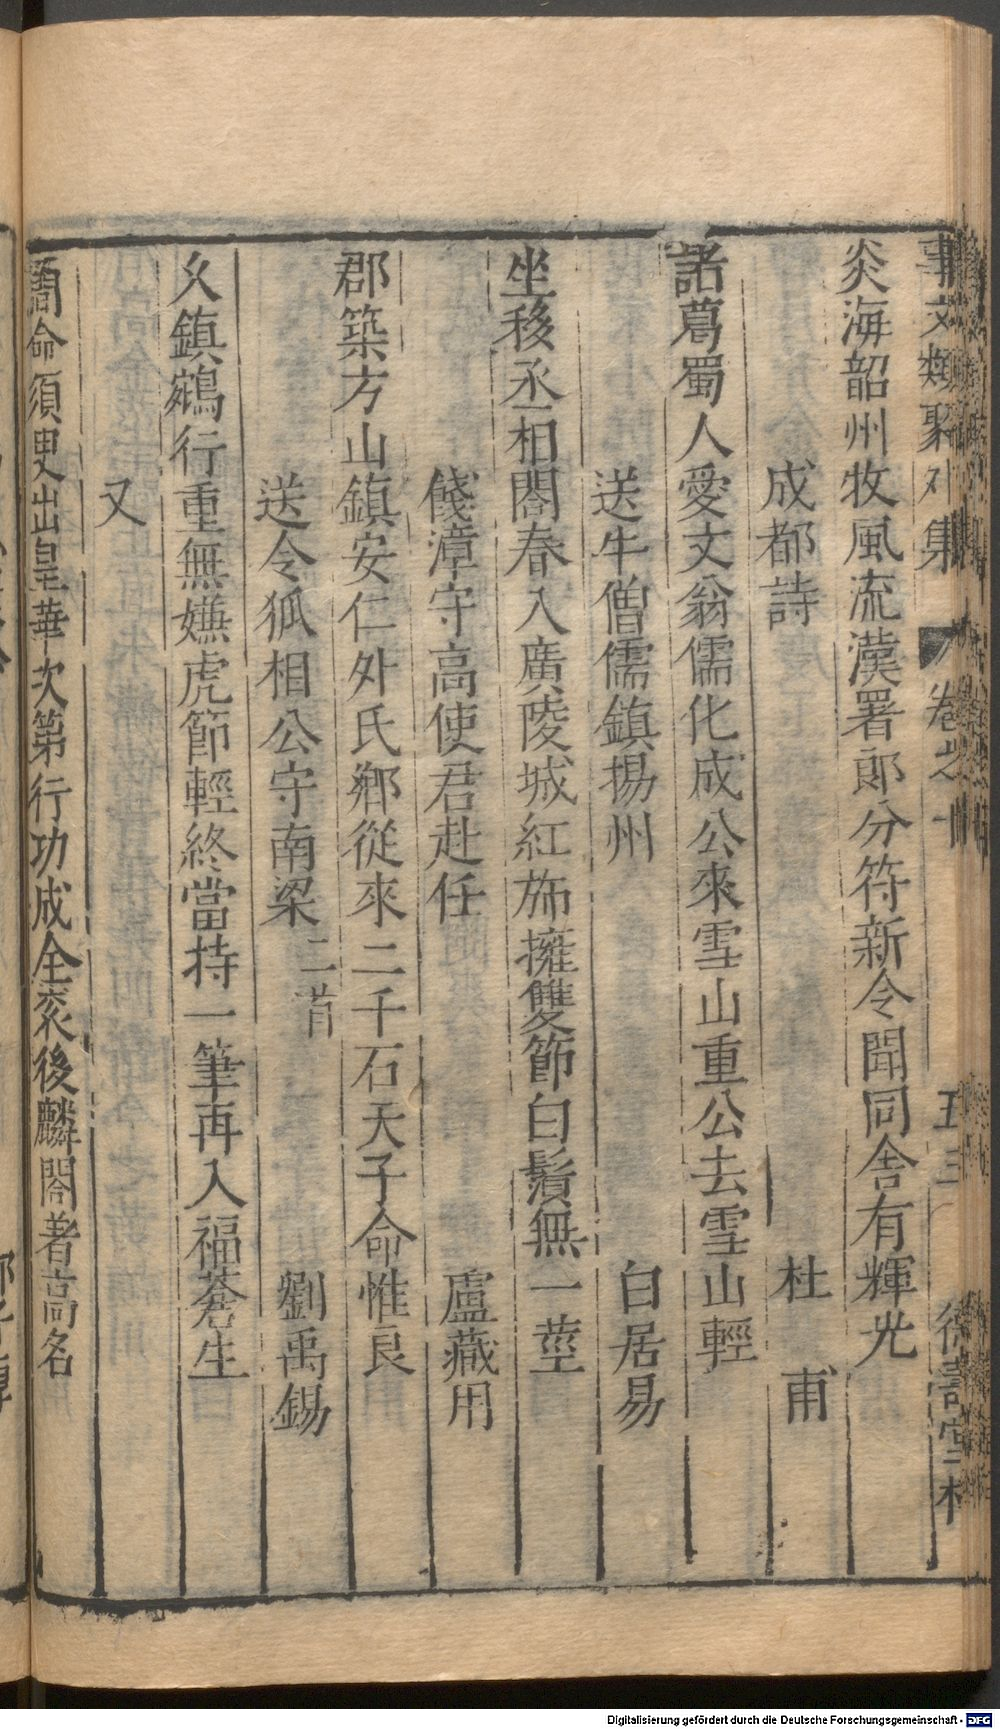 事文類聚外集 卷之 五三
炎海韶州牧風流漢署郎分符新令聞同舍有輝光
成都詩 杜甫
諸葛蜀人愛文翁儒化成公來雪山重公去雪山輕
送牛僧儒鎮揚州 白居易
坐移丞相閣春入廣陵城紅斾擁雙節白鬚無一莖
餞漳守高使君赴任 盧藏用
郡築方山鎮安仁外氏鄉從來二千石天子命惟良
送令狐相公守南梁 二首 劉禹錫
久鎮鵷行重無嫌虎節輕終當持一筆再入福蒼生
又
命須叟出皇華次第行功成全衮後麟閣著高名
Digitalisierung gefördert durch die Deutsche Forschungsgemeinschaft - DFG